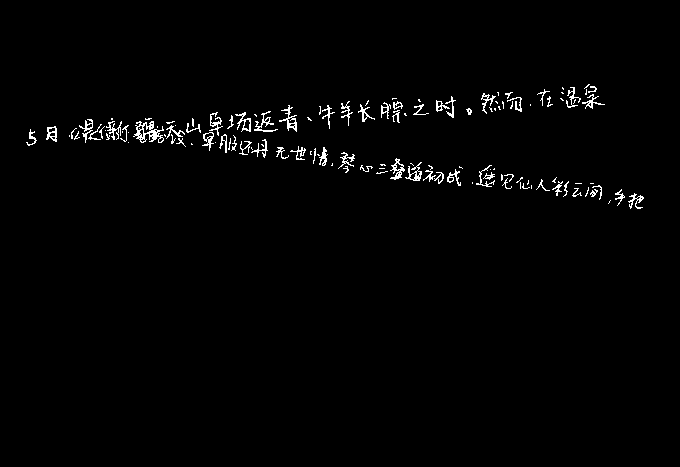 5月是新疆天山草场返青、牛羊长膘之时。然而,在温泉
早服还丹无世情,琴心三叠道初成.遥见仙人彩云间,手把